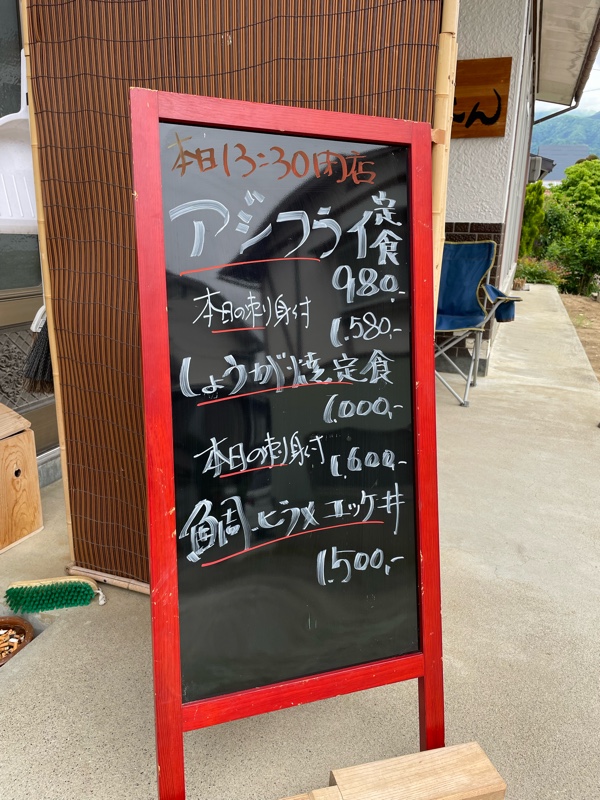 本日13:30閉店
アジフライ定食
980.-
本日の刺身付
1.580,-
しょうが焼定食
1.000,-
本日の刺身付 1.600,-
鯛.ヒラメユッケ丼
1.500,-